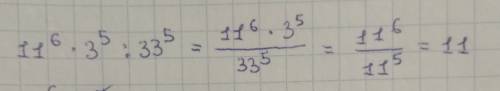 11⁶ · 3⁵ : 33⁵ = \frac{11⁶ · 3⁵}{33⁵} = \frac{11⁶}{11⁵} = 11